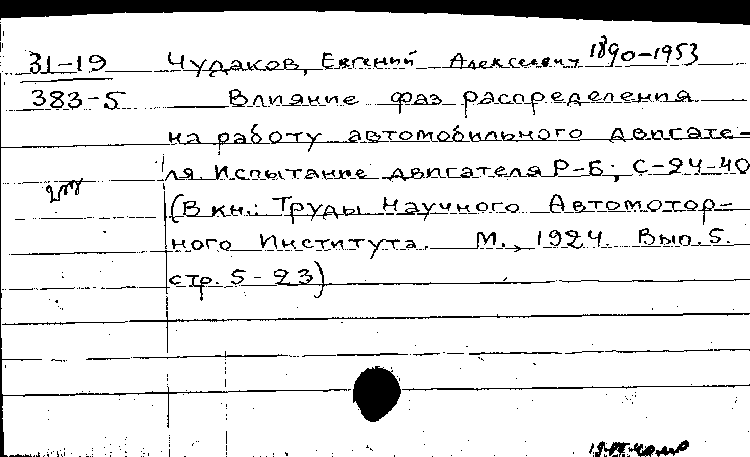 31-19 Чудаков, Евгений Алексеевич 1890-1953
383-5 Влияние фаз распределения
на работу автомобильного двигате-
ля. Испытание двигателя Р-Б; С-24-40
(В кн.: Труды Научного Автомотор-
ного Института. М., 1924. Вып. 5.
стр. 5-23)